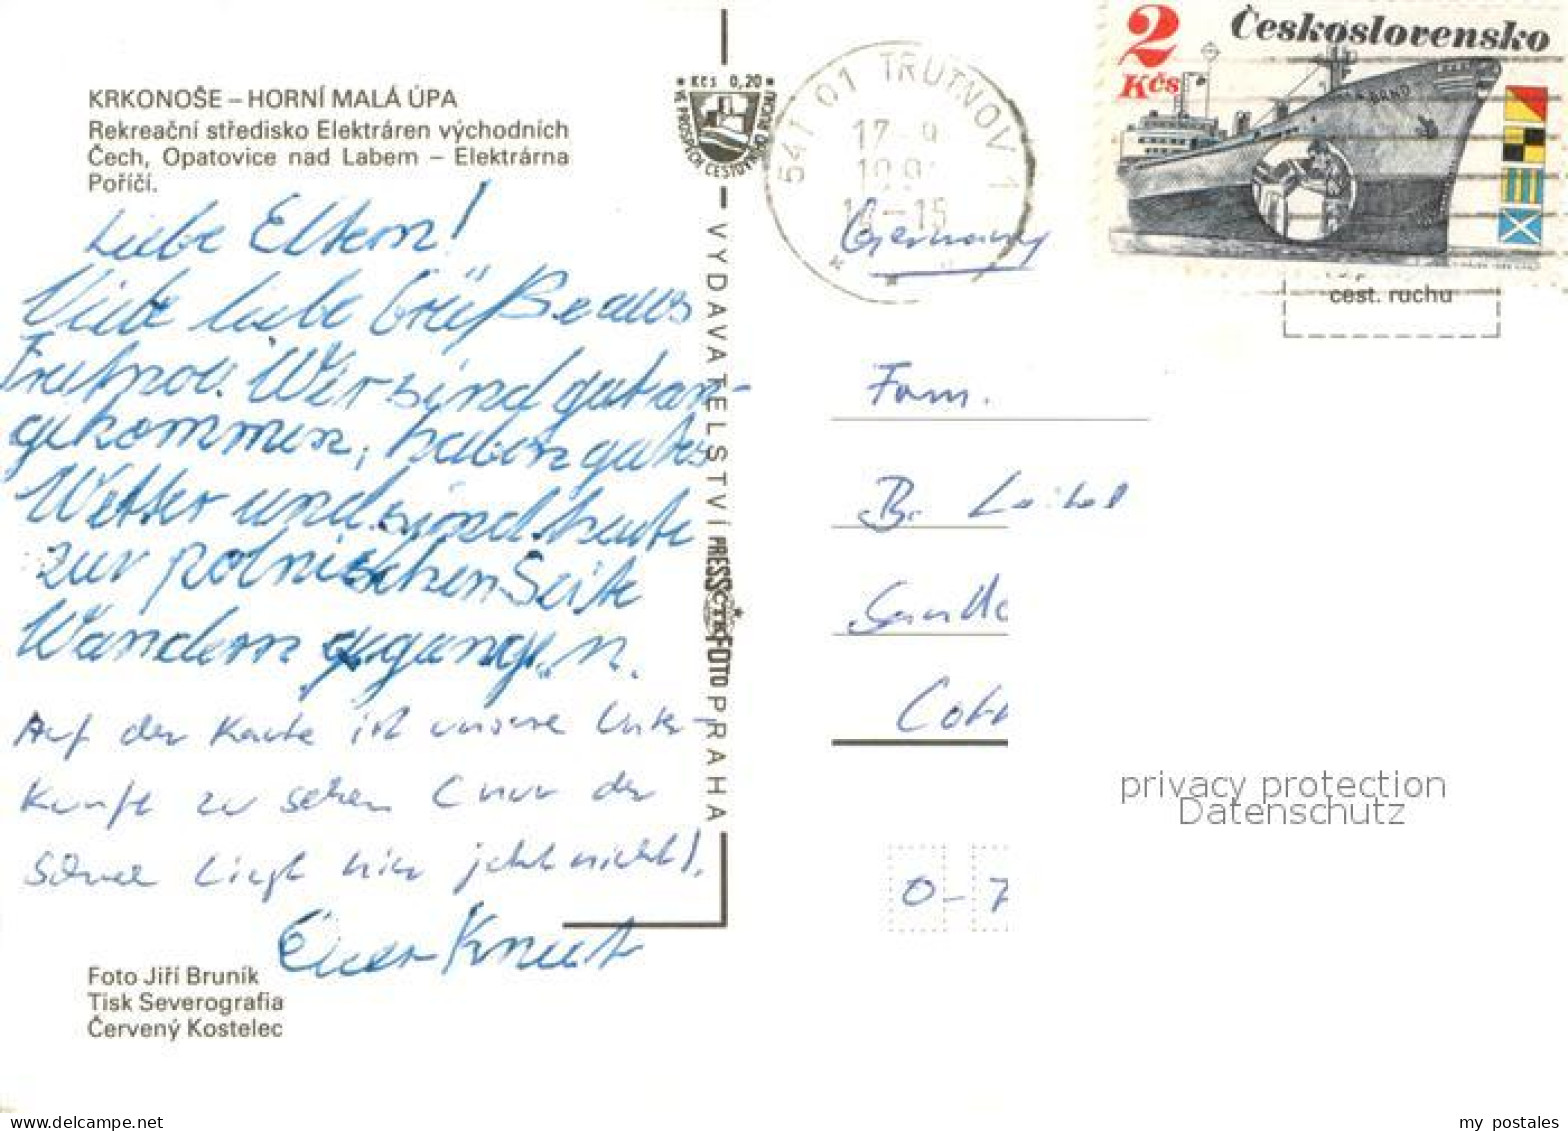 KRKONOŠE – HORNÍ MALÁ ÚPA
Rekreační středisko Elektráren východních
Čech, Opatovice nad Labem – Elektrárna
Poříčí.
Liebe Eltern!
Viele liebe Grüße aus
Trutnov. Wir sind gut an-
gekommen, haben gutes
Wetter und sind heute
zur polnischen Seite
Wandern gegangen.
Auf der Karte ist unsere Unter-
kunft zu sehen (nur der
Schnee liegt hier jetzt nicht).
Euer Knut
Foto Jiří Bruník
Tisk Severografia
Červený Kostelec
Kčs 0,20
VE PROSPĚCH CESTOVNÍHO RUCHU
VYDAVATELSTVÍ PRESSFOTO PRAHA
ČTK
541 01 TRUTNOV 1
17-9
-15
2
Kčs
Československo
BRNO
cest. ruchu
Germany
Fam.
B.
Cott
O-7
privacy protection
Datenschutz
my postales